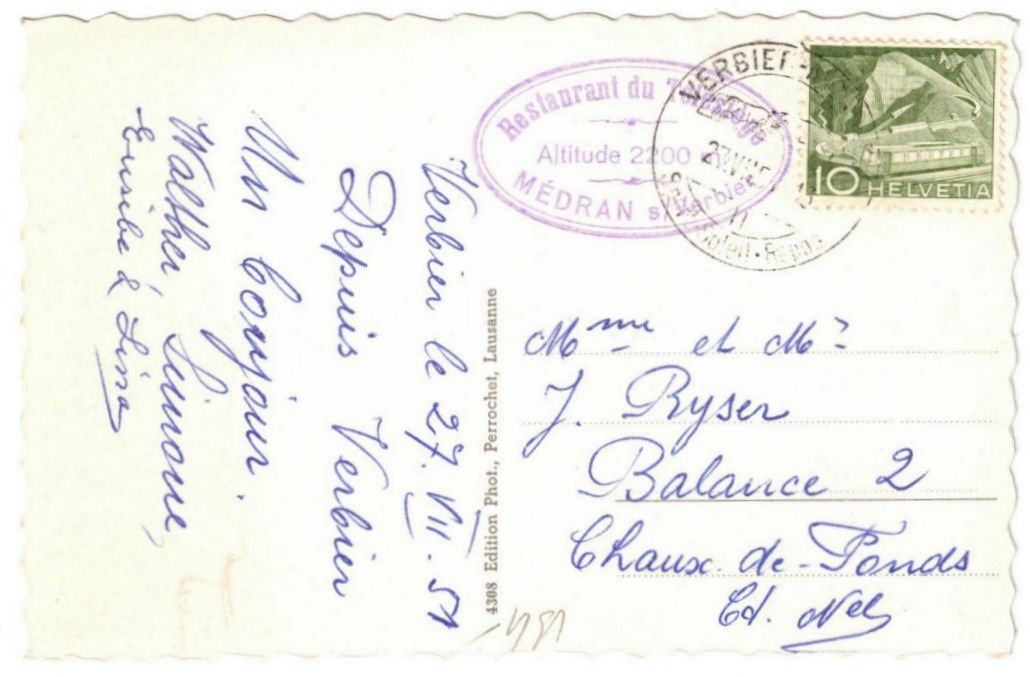 Verbier le 27. VII. 51
Depuis Verbier
Un bonjour.
Walther, Simone,
& Lina
4308 Edition Phot., Perrochet, Lausanne
Restaurant du Télésiège
Altitude 2200 m.
MÉDRAN s/Verbier
VERBIER
27.VII
Soleil - Repos
10 HELVETIA
Mme et Mr
J. Ryser
Balance 2
Chaux-de-Fonds
Ct. Nel
1951